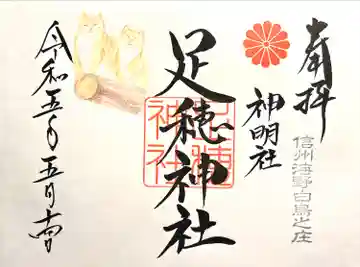 奉拝
神明社
信州海野白鳥之庄
足穂神社
令和五年五月吉日